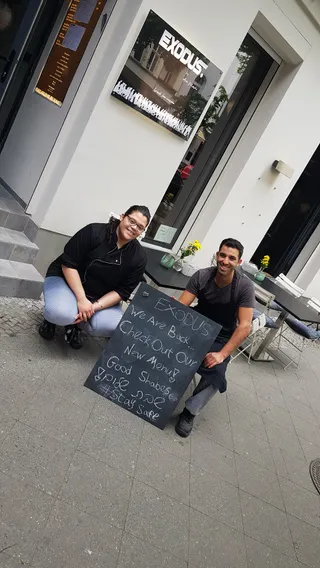 EXODUS.
EXODUS
We Are Back
Check Out Our
New Menu!
Good Shabos
#Stay Safe